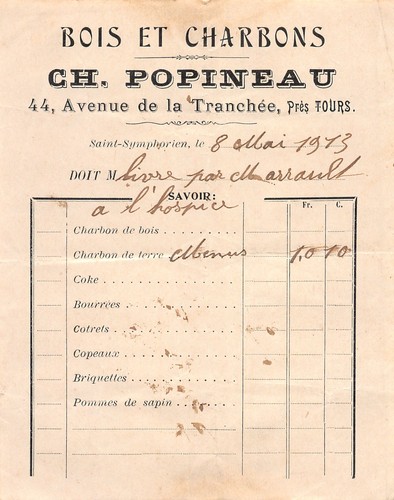 BOIS ET CHARBONS
CH. POPINEAU
44, Avenue de la Tranchée, Près TOURS.
Saint-Symphorien, le 8 Mai 1913
DOIT M livré par Marrault
SAVOIR:
Fr. C.
a l'hospice
Charbon de bois
Charbon de terre Menus 10 10
Coke
Bourrées
Cotrets
Copeaux
Briquettes
Pommes de sapin